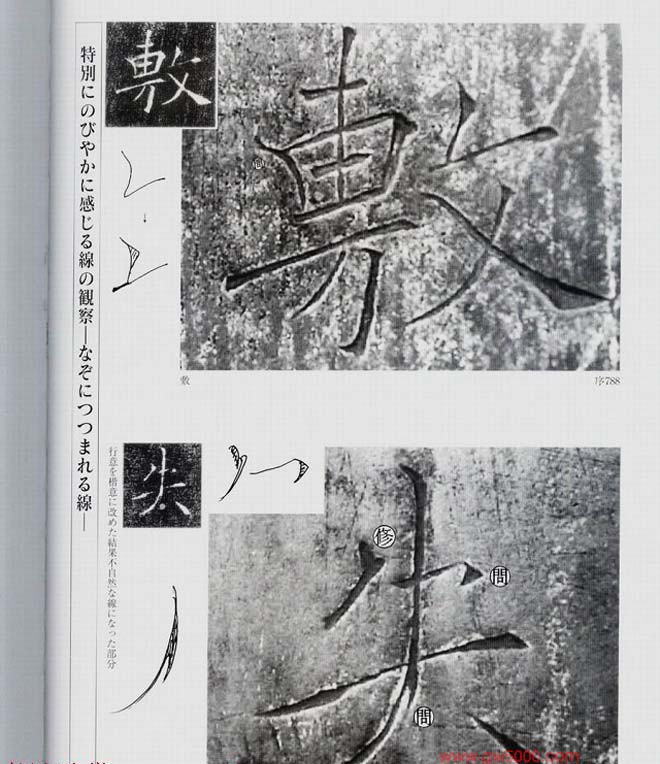 特別にのびやかに感じる線の観察―なぞにつつまれる線―
敷
敷
敷
序788
失
行意を楷意に改めた結果不自然な線になった部分
失
修
問
問